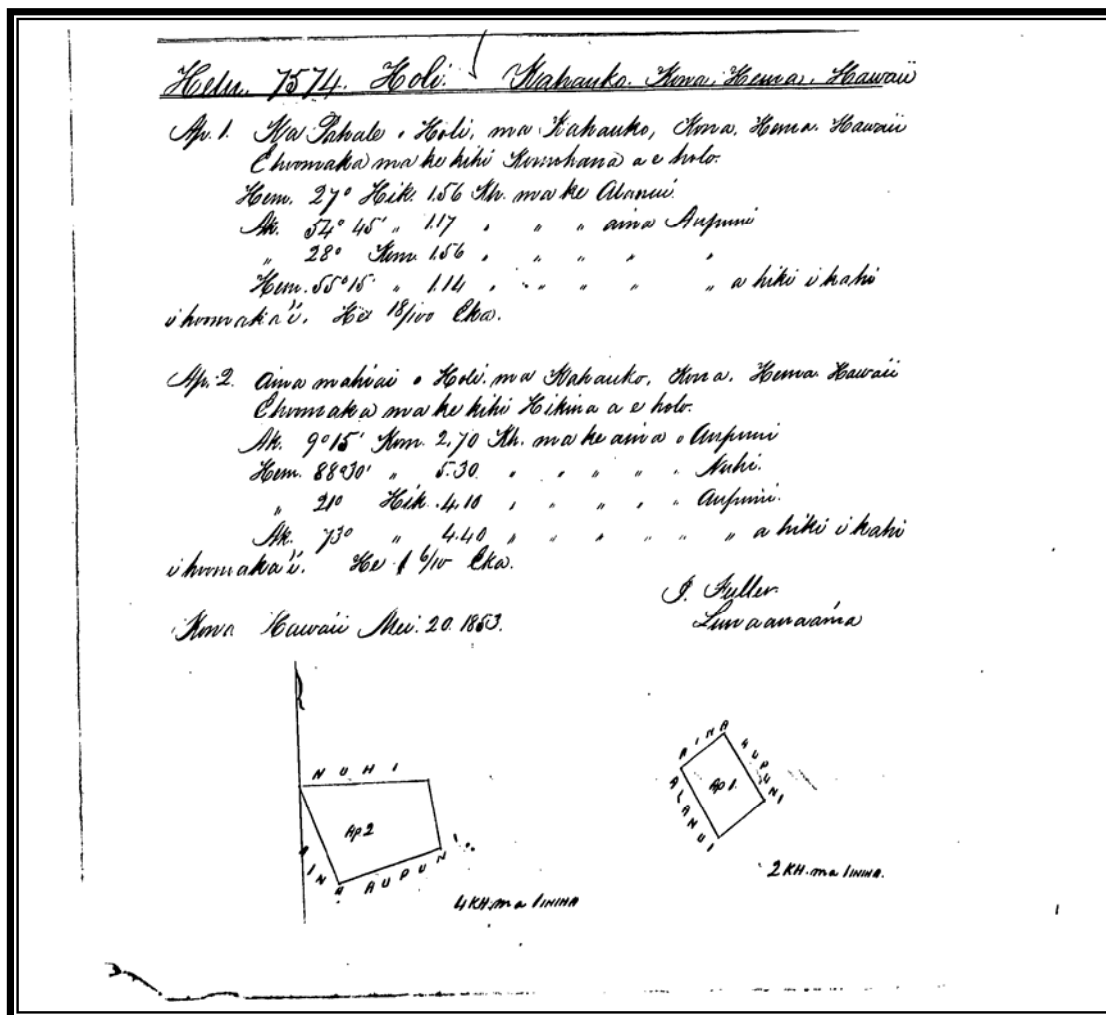 Helu. 7574. Holi. Kahauko. Kona, Hema. Hawaii
Ap. 1. Ka Pahale o Holi, ma Kahauko, Kona. Hema. Hawaii
E hoomaka ma ke kihi Komohana a e holo.
Hem. 27° Hik. 1.56 Kh. ma ke Alanui.
Ak. 54° 45' " 1.17 " " " aina Aupuni
" 28° Kom. 1.56 " " " " "
Hem. 55° 15' " 1.14 " " " " " a hiki i kahi
i hoomaka'i. He 18/100 Eka.
Ap. 2. Aina mahiai o Holi. ma Kahauko, Kona. Hema. Hawaii
E hoomaka ma ke kihi Hikina a e holo.
Ak. 9° 15' Kom. 2.70 Kh. ma ke aina o Aupuni
Hem. 88°30' " 5.30. " " " " " Nuhi.
" 21° Hik. 4.10 " " " " " Aupuni.
Ak. 73° " 4.40 " " " " " " a hiki i kahi
i hoomaka'i. He 1 6/10 Eka.
J. Fuller.
Luna ana aina
Kona Hawaii Mei. 20. 1853.
NUHI
Ap 2
AINA AUPUN
4 KH. ma 1 INIHA
AINA AUPUNI
Ap 1.
ALANUI
2 KH. ma 1 INIHA.